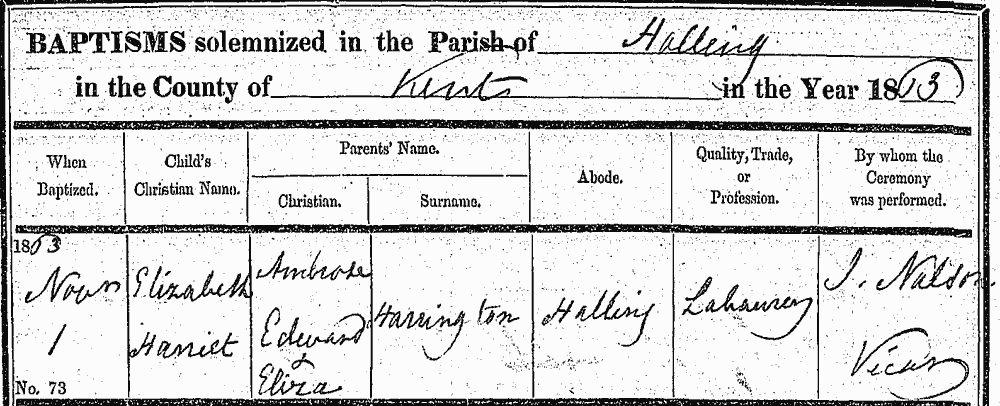 BAPTISMS solemnized in the Parish of Halling
in the County of Kent in the Year 1863
When Baptized.
Child's Christian Name.
Parents' Name.
Christian.
Surname.
Abode.
Quality, Trade, or Profession.
By whom the Ceremony was performed.
1863
Novr
1
No. 73
Elizabeth
Harriet
Ambrose
Edward
&
Eliza
Harrington
Halling
Labourer
Vicar